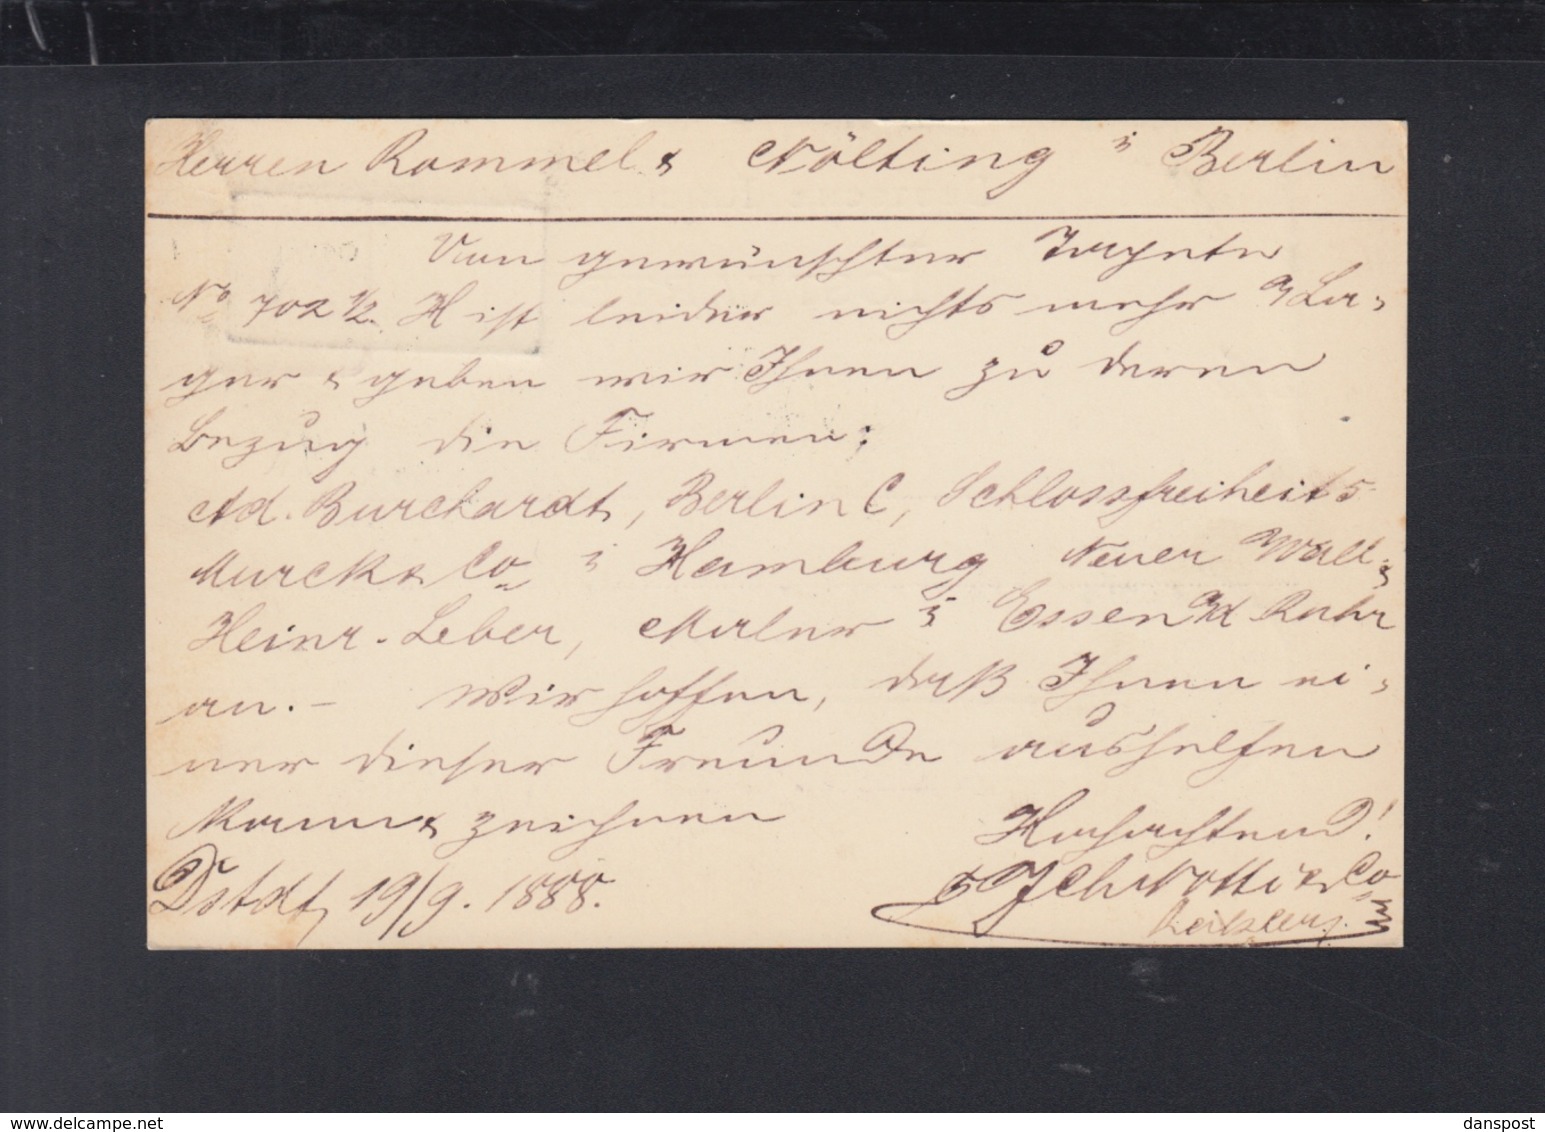 Herren Rommel & Nölting i Berlin
Von gewünschter Tapete
No 702 1/2 H ist leider nichts mehr a/ La-
ger & geben wir Ihnen zu deren
Bezug die Firmen:
Ad. Burchardt, Berlin C, Schlossfreiheit 5
Murck & Co i Hamburg Neuer Wall
Heinr. Leber, Maler i Essen a/d Ruhr
an. – Wir hoffen, daß Ihnen ei-
ner dieser Freunde aushelfen
kann & zeichnen
Hochachtend!
Dstdt, 19/9. 1888.
& Co
danspost